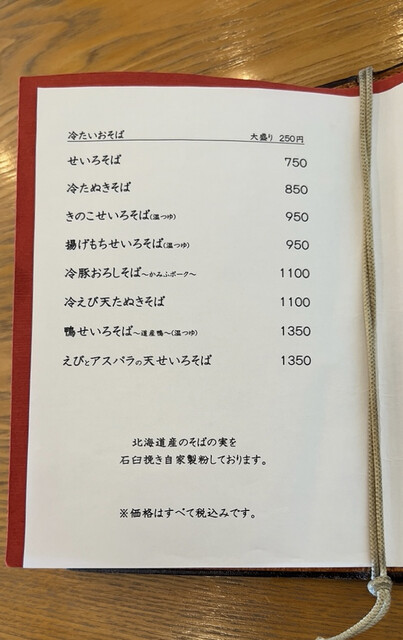 冷たいおそば 大盛り 250円
せいろそば 750
冷たぬきそば 850
きのこせいろそば(温つゆ) 950
揚げもちせいろそば(温つゆ) 950
冷豚おろしそば～かみふポーク～ 1100
冷えび天たぬきそば 1100
鴨せいろそば～道産鴨～(温つゆ) 1350
えびとアスパラの天せいろそば 1350
北海道産のそばの実を
石臼挽き自家製粉しております。
※価格はすべて税込みです。